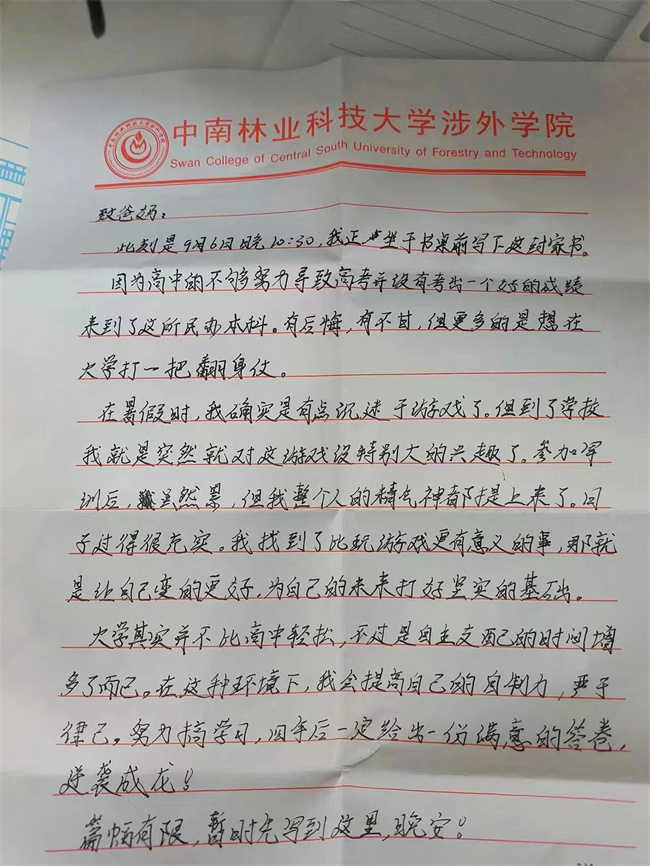 中南林业科技大学涉外学院
Swan College of Central South University of Forestry and Technology
致爸妈：
此刻是9月6日晚10:30，我正坐于书桌前写下这封家书。
因为高中的不够努力导致高考并没有考出一个好的成绩
来到了这所民办本科。有后悔，有不甘，但更多的是想在
大学打一把翻身仗。
在暑假时，我确实是有点沉迷于游戏了。但到了学校
我就是突然就对这游戏没特别大的兴趣了。参加军
训后，虽然累，但我整个人的精气神都提上来了。日
子过得很充实。我找到了比玩游戏更有意义的事，那就
是让自己变的更好，为自己的未来打好坚实的基础。
大学其实并不比高中轻松，不过是自主支配的时间增
多了而已。在这种环境下，我会提高自己的自制力，严于
律己。努力搞学习，四年后一定给出一份满意的答卷，
逆袭成龙！
篇幅有限，暂时先写到这里，晚安！